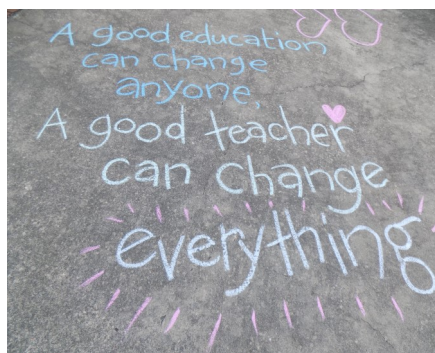 A good education
can change
anyone,
A good teacher
can change
everything